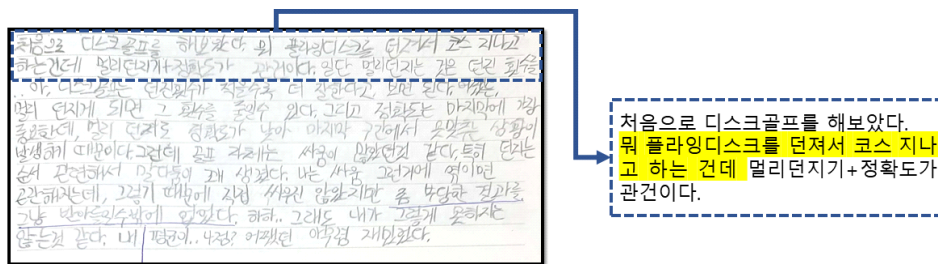 처음으로 디스크골프를 해보았다. 뭐 플라잉디스크를 던져서 코스 지나고
하는건데 멀리던지기+정확도가 관건이다. 일단 멀리던지는 것은 던진 횟수를
..아, 디스크골프는 던진횟수가 적을수록 더 잘한다고 보면 된다. 어쨌든,
멀리 던지게 되면 그 횟수를 줄일수 있다. 그리고 정확도는 마지막에 가장
중요한데, 멀리 던져도 정확도가 낮아 마지막 구간에서 못맞추는 상황이
발생하기 때문이다. 그런데 골프 자체는 싸움이 많았던것 같다. 특히 던지는
순서 관련해서 말다툼이 꽤 생겼다. 나는 싸움 그런거에 엮이면
곤란해지는데, 그렇기 때문에 직접 싸우진 않았지만 좀 부당한 결과를
그냥 받아들일수밖에 없었다. 하하.. 그래도 내가 그렇게 못하지는
않는것 같다. 내 평균이.. 4점? 어쨌던 아무렴 재밌었다.
처음으로 디스크골프를 해보았다.
뭐 플라잉디스크를 던져서 코스 지나
고 하는 건데 멀리던지기+정확도가
관건이다.